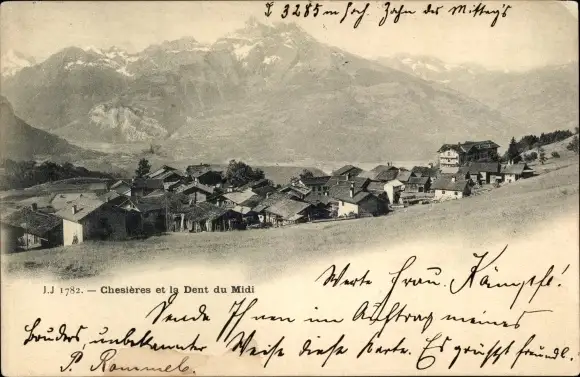 3285 m hoch Zahn des Mittag's
J.J 1782. — Chesières et la Dent du Midi
Werte Frau Kämpf!
Sende Ihnen im Auftrag meines
Bruders, unbekannter Weise diese Karte. Es grüsst freundl.
P. Rommel.